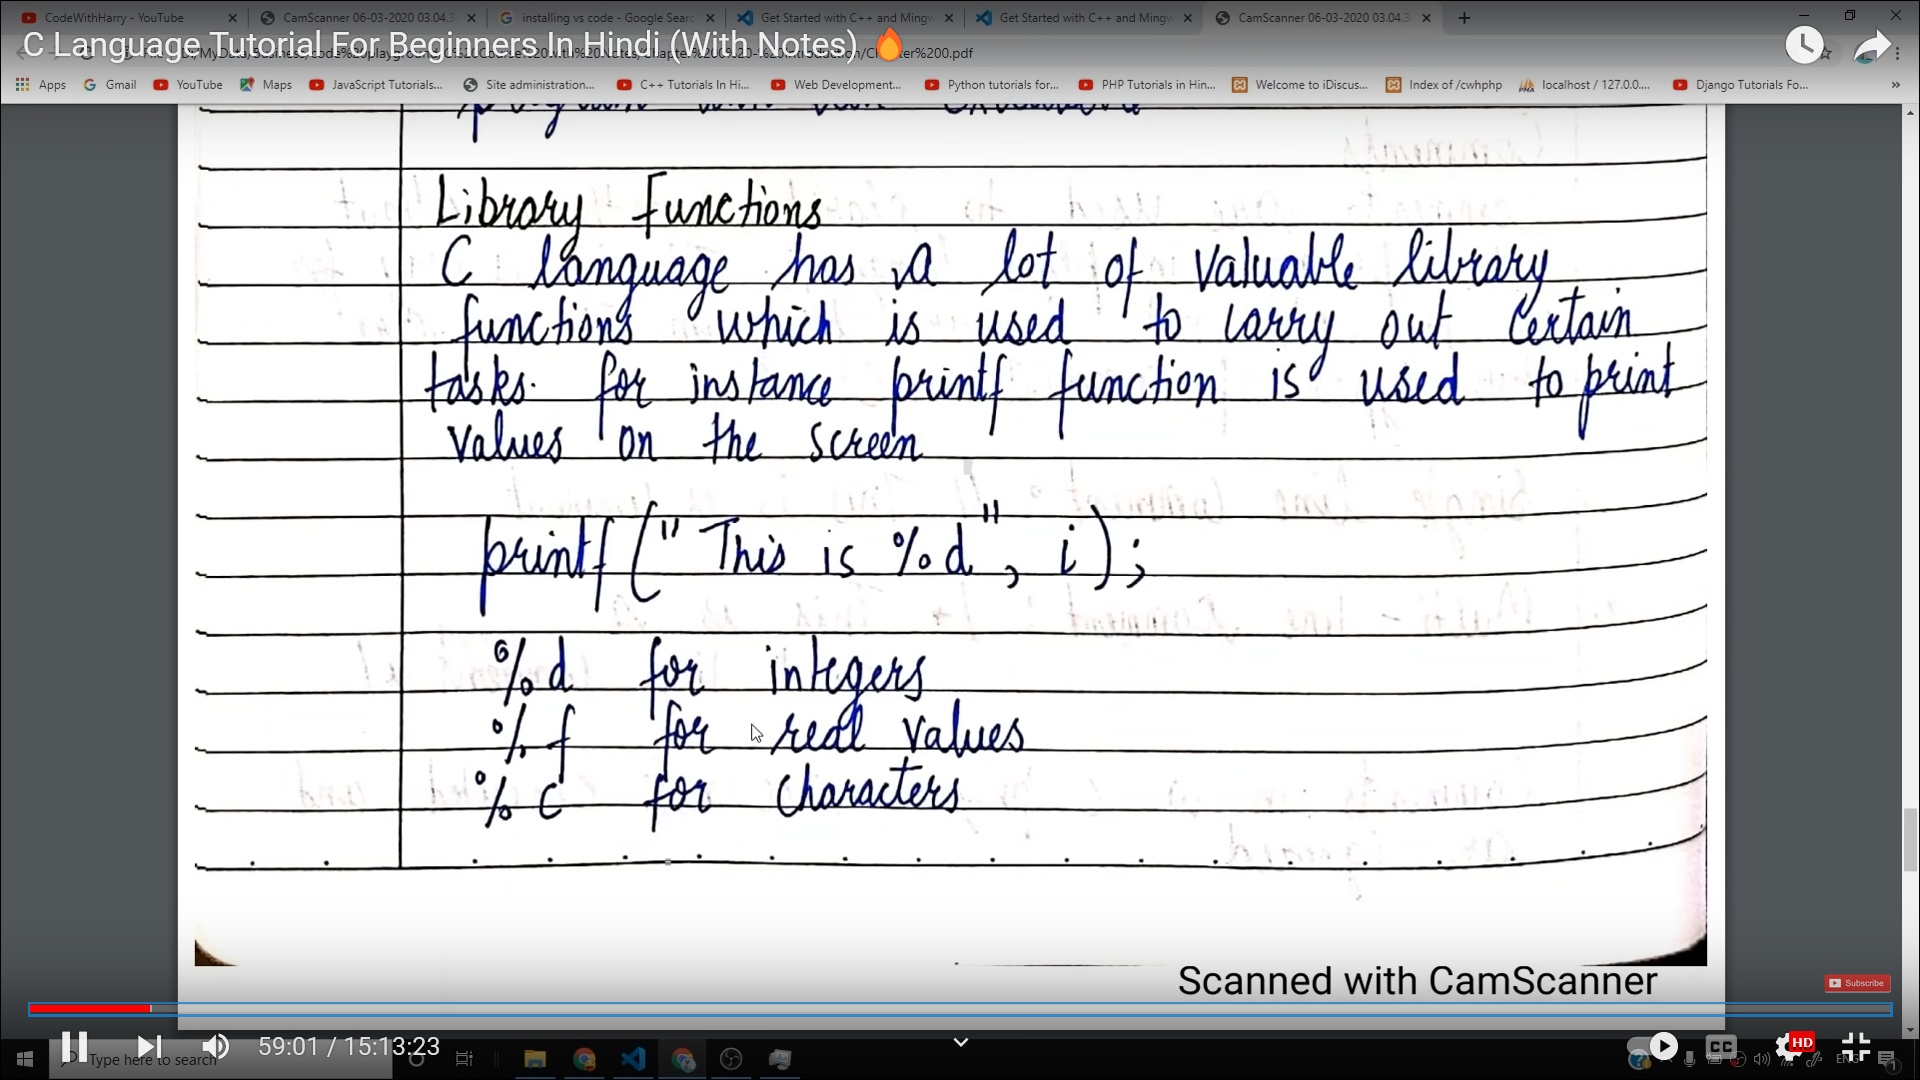 CodeWithHarry - YouTube
CamScanner 06-03-2020 03.04.3
installing vs code - Google Searc
Get Started with C++ and Mingw
Get Started with C++ and Mingw
CamScanner 06-03-2020 03.04.3
C Language Tutorial For Beginners In Hindi (With Notes) 🔥
Apps
Gmail
YouTube
Maps
JavaScript Tutorials...
Site administration...
C++ Tutorials In Hi...
Web Development...
Python tutorials for...
PHP Tutorials in Hin...
Welcome to iDiscus...
Index of /cwhphp
localhost / 127.0.0....
Django Tutorials Fo...
»
Library Functions
C language has a lot of valuable library
functions which is used to carry out certain
tasks. for instance printf function is used to print
values on the screen
printf ("This is %d", i);
%d for integers
%f for real values
%c for characters
Scanned with CamScanner
Subscribe
59:01 / 15:13:23
CC
HD
Type here to search